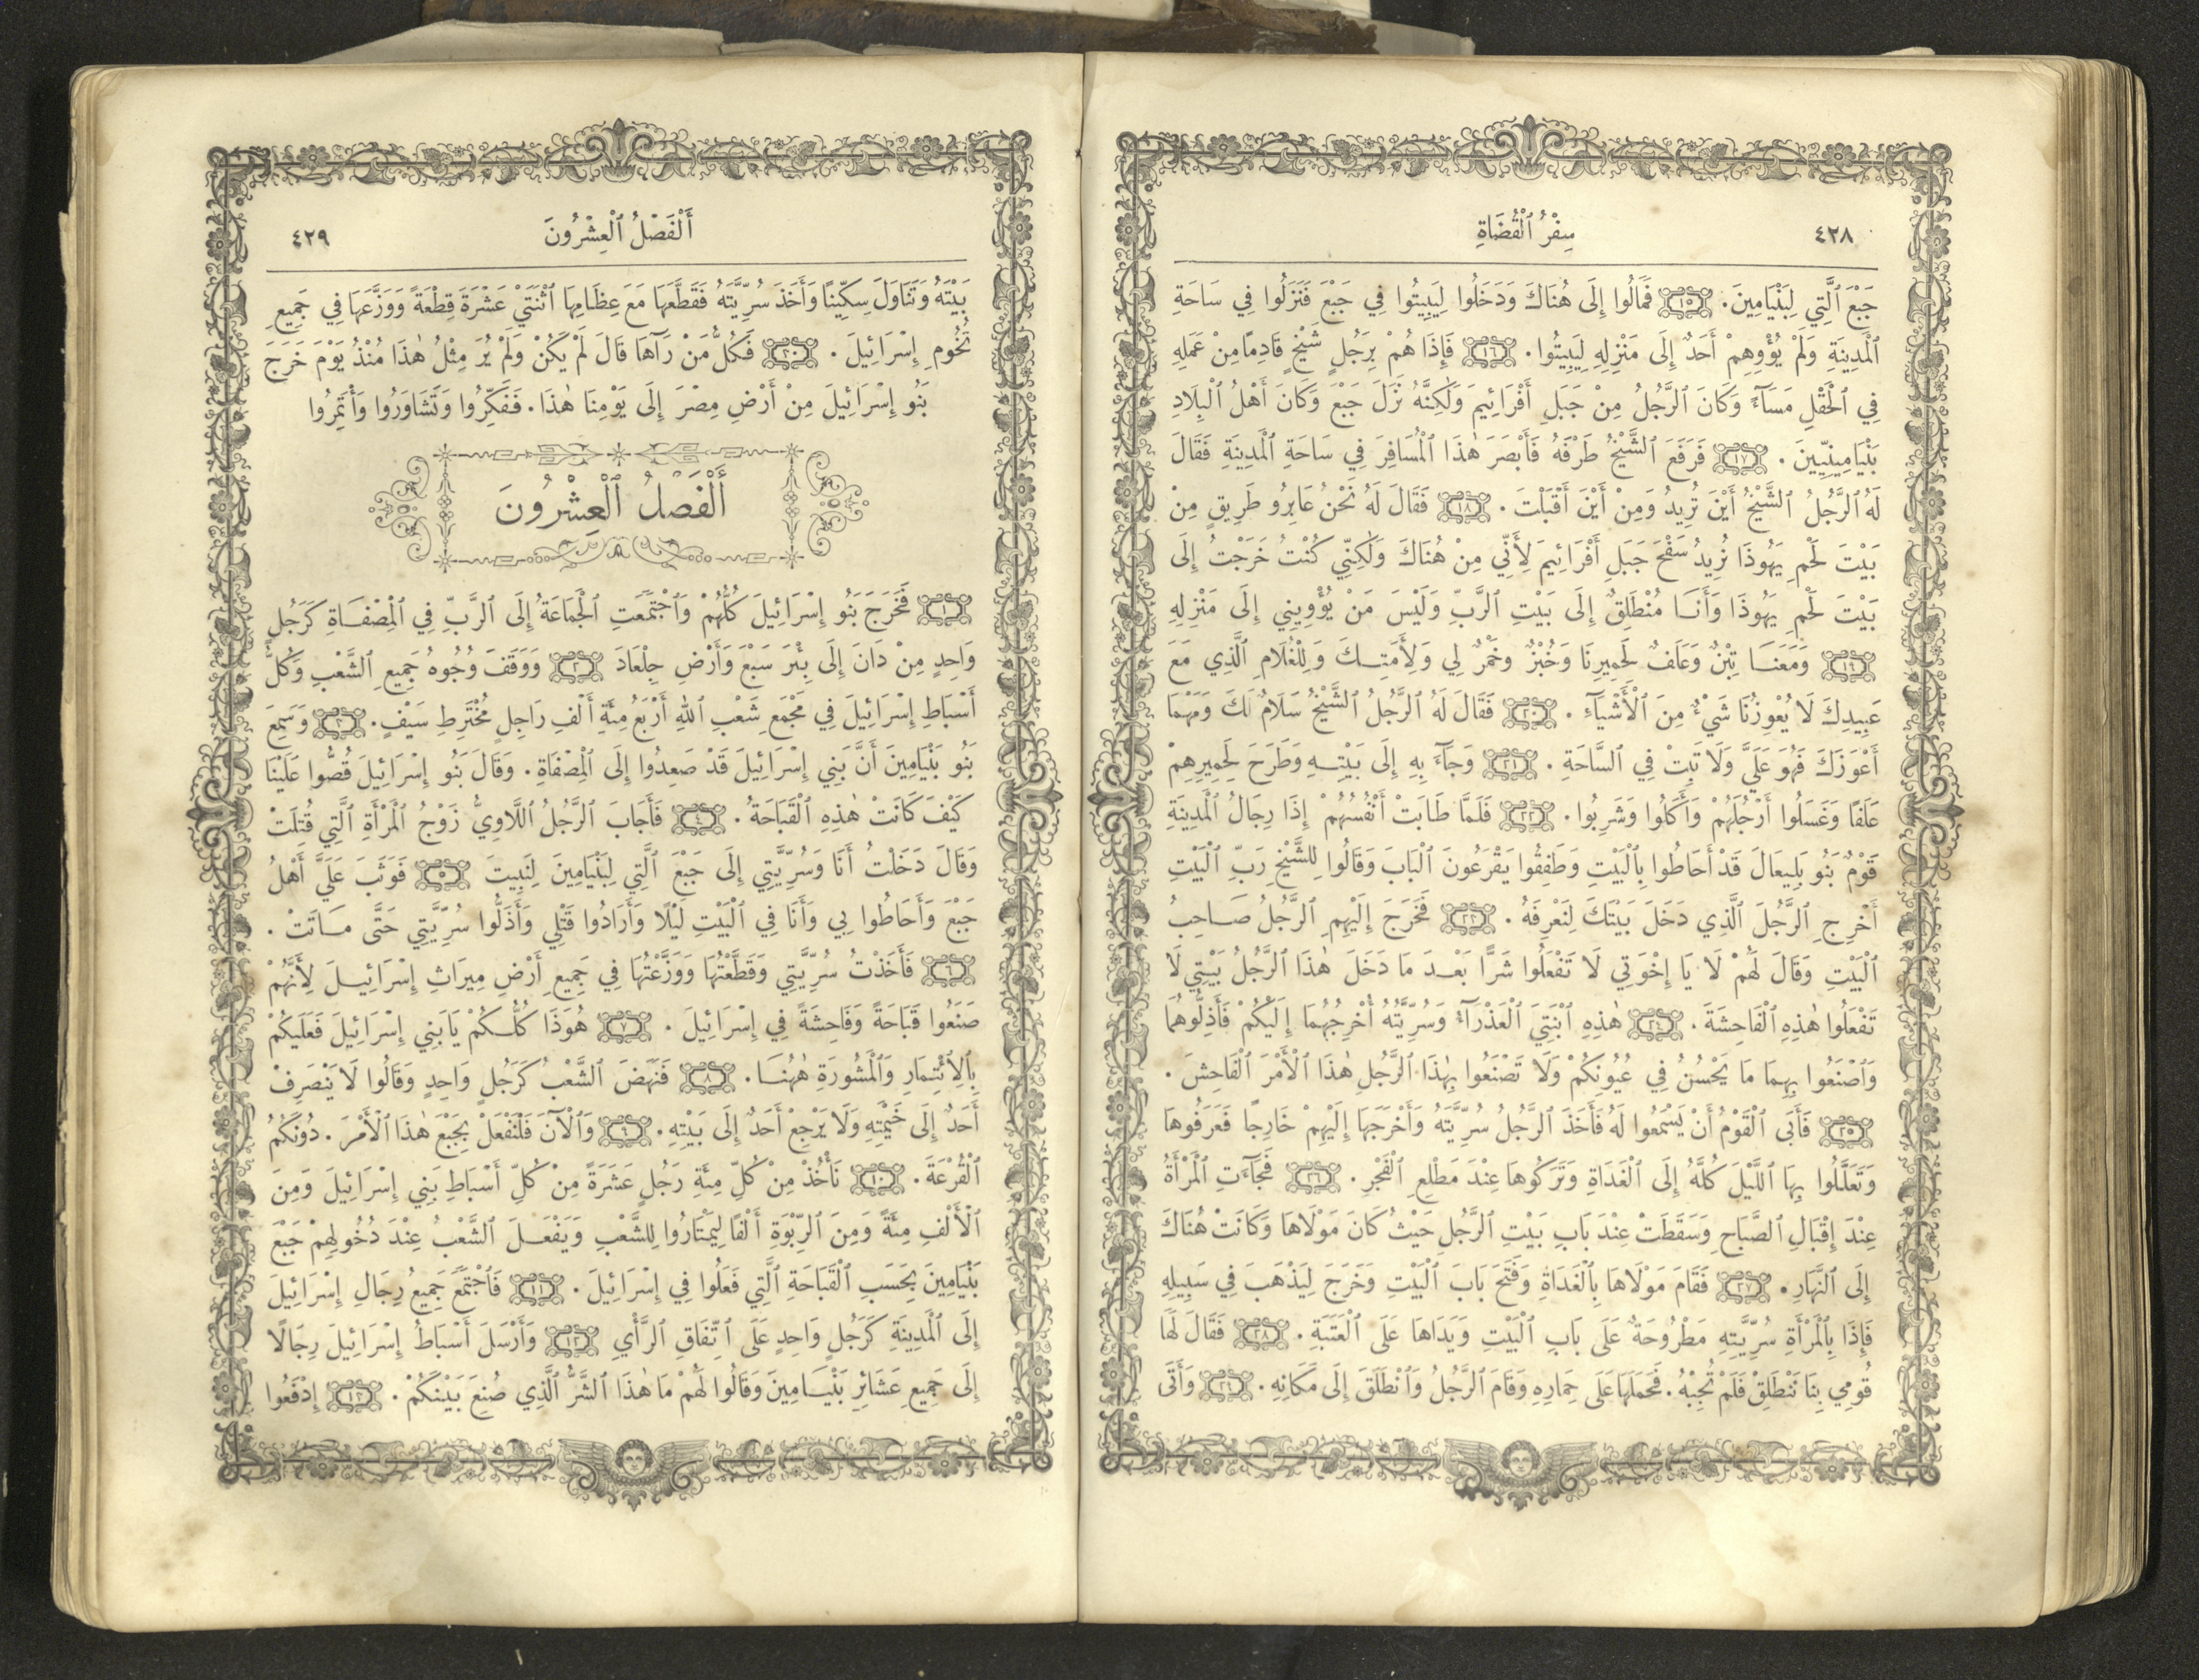 ٤٢٨
سِفْرُ ٱلْقُضَاةِ
جَبْعَ ٱلَّتِي لِبَنْيَامِينَ. ١٥ فَمَالُوا إِلَى هُنَاكَ وَدَخَلُوا لِيَبِيتُوا فِي جَبْعَ فَنَزَلُوا فِي سَاحَةِ
ٱلْمَدِينَةِ وَلَمْ يُؤْوِهِمْ أَحَدٌ إِلَى مَنْزِلِهِ لِيَبِيتُوا. ١٦ فَإِذَا هُمْ بِرَجُلٍ شَيْخٍ قَادِمًا مِنْ عَمَلِهِ
فِي ٱلْحَقْلِ مَسَآءً وَكَانَ ٱلرَّجُلُ مِنْ جَبَلِ أَفْرَائِيمَ وَلٰكِنَّهُ نَزَلَ جَبْعَ وَكَانَ أَهْلُ ٱلْبِلَادِ
بَنْيَامِينِيِّينَ. ١٧ فَرَفَعَ ٱلشَّيْخُ طَرْفَهُ فَأَبْصَرَ هٰذَا ٱلْمُسَافِرَ فِي سَاحَةِ ٱلْمَدِينَةِ فَقَالَ
لَهُ ٱلرَّجُلُ ٱلشَّيْخُ أَيْنَ تُرِيدُ وَمِنْ أَيْنَ أَقْبَلْتَ. ١٨ فَقَالَ لَهُ نَحْنُ عَابِرُو طَرِيقٍ مِنْ
بَيْتَ لَحْمِ يَهُوذَا نُرِيدُ سَفْحَ جَبَلِ أَفْرَائِيمَ لِأَنِّي مِنْ هُنَاكَ وَلٰكِنِّي كُنْتُ خَرَجْتُ إِلَى
بَيْتَ لَحْمِ يَهُوذَا وَأَنَا مُنْطَلِقٌ إِلَى بَيْتِ ٱلرَّبِّ وَلَيْسَ مَنْ يُؤْوِينِي إِلَى مَنْزِلِهِ
١٩ وَمَعَنَا تِبْنٌ وَعَلَفٌ لِحَمِيرِنَا وَخُبْزٌ وَخَمْرٌ لِي وَلِأَمَتِكَ وَلِلْغُلَامِ ٱلَّذِي مَعَ
عَبِيدِكَ لَا يُعْوِزُنَا شَيْءٌ مِنَ ٱلْأَشْيَآءِ. ٢٠ فَقَالَ لَهُ ٱلرَّجُلُ ٱلشَّيْخُ سَلَامٌ لَكَ وَمَهْمَا
أَعْوَزَكَ فَهُوَ عَلَيَّ وَلَا تَبِتْ فِي ٱلسَّاحَةِ. ٢١ وَجَآءَ بِهِ إِلَى بَيْتِهِ وَطَرَحَ لِحَمِيرِهِمْ
عَلَفًا وَغَسَلُوا أَرْجُلَهُمْ وَأَكَلُوا وَشَرِبُوا. ٢٢ فَلَمَّا طَابَتْ أَنْفُسُهُمْ إِذَا رِجَالُ ٱلْمَدِينَةِ
قَوْمٌ بَنُو بَلِيعَالَ قَدْ أَحَاطُوا بِٱلْبَيْتِ وَطَفِقُوا يَقْرَعُونَ ٱلْبَابَ وَقَالُوا لِلشَّيْخِ رَبِّ ٱلْبَيْتِ
أَخْرِجِ ٱلرَّجُلَ ٱلَّذِي دَخَلَ بَيْتَكَ لِنَعْرِفَهُ. ٢٣ فَخَرَجَ إِلَيْهِمِ ٱلرَّجُلُ صَاحِبُ
ٱلْبَيْتِ وَقَالَ لَهُمْ لَا يَا إِخْوَتِي لَا تَفْعَلُوا شَرًّا بَعْدَ مَا دَخَلَ هٰذَا ٱلرَّجُلُ بَيْتِي لَا
تَفْعَلُوا هٰذِهِ ٱلْفَاحِشَةَ. ٢٤ هٰذِهِ ٱبْنَتِيَ ٱلْعَذْرَآءُ وَسُرِّيَّتُهُ أُخْرِجُهُمَا إِلَيْكُمْ فَأَذِلُّوهُمَا
وَٱصْنَعُوا بِهِمَا مَا يَحْسُنُ فِي عُيُونِكُمْ وَلَا تَصْنَعُوا بِهٰذَا ٱلرَّجُلِ هٰذَا ٱلْأَمْرَ ٱلْفَاحِشَ.
٢٥ فَأَبَى ٱلْقَوْمُ أَنْ يَسْمَعُوا لَهُ فَأَخَذَ ٱلرَّجُلُ سُرِّيَّتَهُ وَأَخْرَجَهَا إِلَيْهِمْ خَارِجًا فَعَرَفُوهَا
وَتَعَلَّلُوا بِهَا ٱللَّيْلَ كُلَّهُ إِلَى ٱلْغَدَاةِ وَتَرَكُوهَا عِنْدَ مَطْلِعِ ٱلْفَجْرِ. ٢٦ فَجَآءَتِ ٱلْمَرْأَةُ
عِنْدَ إِقْبَالِ ٱلصَّبَاحِ وَسَقَطَتْ عِنْدَ بَابِ بَيْتِ ٱلرَّجُلِ حَيْثُ كَانَ مَوْلَاهَا وَكَانَتْ هُنَاكَ
إِلَى ٱلنَّهَارِ. ٢٧ فَقَامَ مَوْلَاهَا بِٱلْغَدَاةِ وَفَتَحَ بَابَ ٱلْبَيْتِ وَخَرَجَ لِيَذْهَبَ فِي سَبِيلِهِ
فَإِذَا بِٱلْمَرْأَةِ سُرِّيَّتِهِ مَطْرُوحَةٌ عَلَى بَابِ ٱلْبَيْتِ وَيَدَاهَا عَلَى ٱلْعَتَبَةِ. ٢٨ فَقَالَ لَهَا
قُومِي بِنَا نَنْطَلِقْ فَلَمْ تُجِبْهُ. فَحَمَلَهَا عَلَى حِمَارِهِ وَقَامَ ٱلرَّجُلُ وَٱنْطَلَقَ إِلَى مَكَانِهِ. ٢٩ وَأَتَى
أَلْفَصْلُ ٱلْعِشْرُونَ
٤٢٩
بَيْتَهُ وَتَنَاوَلَ سِكِّينًا وَأَخَذَ سُرِّيَّتَهُ فَقَطَّعَهَا مَعَ عِظَامِهَا ٱثْنَتَيْ عَشْرَةَ قِطْعَةً وَوَزَّعَهَا فِي جَمِيعِ
تُخُومِ إِسْرَائِيلَ. ٣٠ فَكُلُّ مَنْ رَآهَا قَالَ لَمْ يَكُنْ وَلَمْ يُرَ مِثْلُ هٰذَا مُنْذُ يَوْمَ خَرَجَ
بَنُو إِسْرَائِيلَ مِنْ أَرْضِ مِصْرَ إِلَى يَوْمِنَا هٰذَا. فَفَكِّرُوا وَتَشَاوَرُوا وَأْتَمِرُوا
أَلْفَصْلُ ٱلْعِشْرُونَ
١ فَخَرَجَ بَنُو إِسْرَائِيلَ كُلُّهُمْ وَٱجْتَمَعَتِ ٱلْجَمَاعَةُ إِلَى ٱلرَّبِّ فِي ٱلْمِصْفَاةِ كَرَجُلٍ
وَاحِدٍ مِنْ دَانَ إِلَى بِئْرَ سَبْعَ وَأَرْضِ جِلْعَادَ ٢ وَوَقَفَ وُجُوهُ جَمِيعِ ٱلشَّعْبِ وَكُلُّ
أَسْبَاطِ إِسْرَائِيلَ فِي مَجْمَعِ شَعْبِ ٱللهِ أَرْبَعُ مِئَةِ أَلْفِ رَاجِلٍ مُخْتَرِطِ سَيْفٍ. ٣ وَسَمِعَ
بَنُو بَنْيَامِينَ أَنَّ بَنِي إِسْرَائِيلَ قَدْ صَعِدُوا إِلَى ٱلْمِصْفَاةِ. وَقَالَ بَنُو إِسْرَائِيلَ قُصُّوا عَلَيْنَا
كَيْفَ كَانَتْ هٰذِهِ ٱلْقَبَاحَةُ. ٤ فَأَجَابَ ٱلرَّجُلُ ٱللَّاوِيُّ زَوْجُ ٱلْمَرْأَةِ ٱلَّتِي قُتِلَتْ
وَقَالَ دَخَلْتُ أَنَا وَسُرِّيَّتِي إِلَى جَبْعَ ٱلَّتِي لِبَنْيَامِينَ لِنَبِيتَ ٥ فَوَثَبَ عَلَيَّ أَهْلُ
جَبْعَ وَأَحَاطُوا بِي وَأَنَا فِي ٱلْبَيْتِ لَيْلًا وَأَرَادُوا قَتْلِي وَأَذَلُّوا سُرِّيَّتِي حَتَّى مَاتَتْ.
٦ فَأَخَذْتُ سُرِّيَّتِي وَقَطَّعْتُهَا وَوَزَّعْتُهَا فِي جَمِيعِ أَرْضِ مِيرَاثِ إِسْرَائِيلَ لِأَنَّهُمْ
صَنَعُوا قَبَاحَةً وَفَاحِشَةً فِي إِسْرَائِيلَ. ٧ هُوَذَا كُلُّكُمْ يَا بَنِي إِسْرَائِيلَ فَعَلَيْكُمْ
بِٱلِٱئْتِمَارِ وَٱلْمَشُورَةِ هٰهُنَا. ٨ فَنَهَضَ ٱلشَّعْبُ كَرَجُلٍ وَاحِدٍ وَقَالُوا لَا يَنْصَرِفْ
أَحَدٌ إِلَى خَيْمَتِهِ وَلَا يَرْجِعْ أَحَدٌ إِلَى بَيْتِهِ. ٩ وَٱلْآنَ فَلْنَفْعَلْ بِجَبْعَ هٰذَا ٱلْأَمْرَ. دُونَكُمُ
ٱلْقُرْعَةَ. ١٠ نَأْخُذْ مِنْ كُلِّ مِئَةِ رَجُلٍ عَشَرَةً مِنْ كُلِّ أَسْبَاطِ بَنِي إِسْرَائِيلَ وَمِنَ
ٱلْأَلْفِ مِئَةً وَمِنَ ٱلرِّبْوَةِ أَلْفًا لِيَمْتَارُوا لِلشَّعْبِ وَيَفْعَلَ ٱلشَّعْبُ عِنْدَ دُخُولِهِمْ جَبْعَ
بَنْيَامِينَ بِحَسَبِ ٱلْقَبَاحَةِ ٱلَّتِي فَعَلُوا فِي إِسْرَائِيلَ. ١١ فَٱجْتَمَعَ جَمِيعُ رِجَالِ إِسْرَائِيلَ
إِلَى ٱلْمَدِينَةِ كَرَجُلٍ وَاحِدٍ عَلَى ٱتِّفَاقِ ٱلرَّأْيِ ١٢ وَأَرْسَلَ أَسْبَاطُ إِسْرَائِيلَ رِجَالًا
إِلَى جَمِيعِ عَشَائِرِ بَنْيَامِينَ وَقَالُوا لَهُمْ مَا هٰذَا ٱلشَّرُّ ٱلَّذِي صُنِعَ بَيْنَكُمْ. ١٣ إِدْفَعُوا